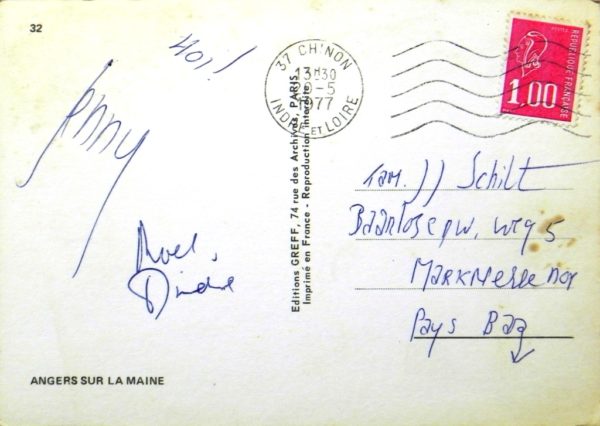 32
HOI!
Jenny
Roel,
Dindre
ANGERS SUR LA MAINE
Editions GREFF, 74 rue des Archives, PARIS
Imprimé en France - Reproduction interdite
37 CHINON
13H30
-5
1977
INDRE ET LOIRE
1,00
REPUBLIQUE FRANÇAISE
POSTES
Fam. JJ Schilt
weg 5
Pays Bas